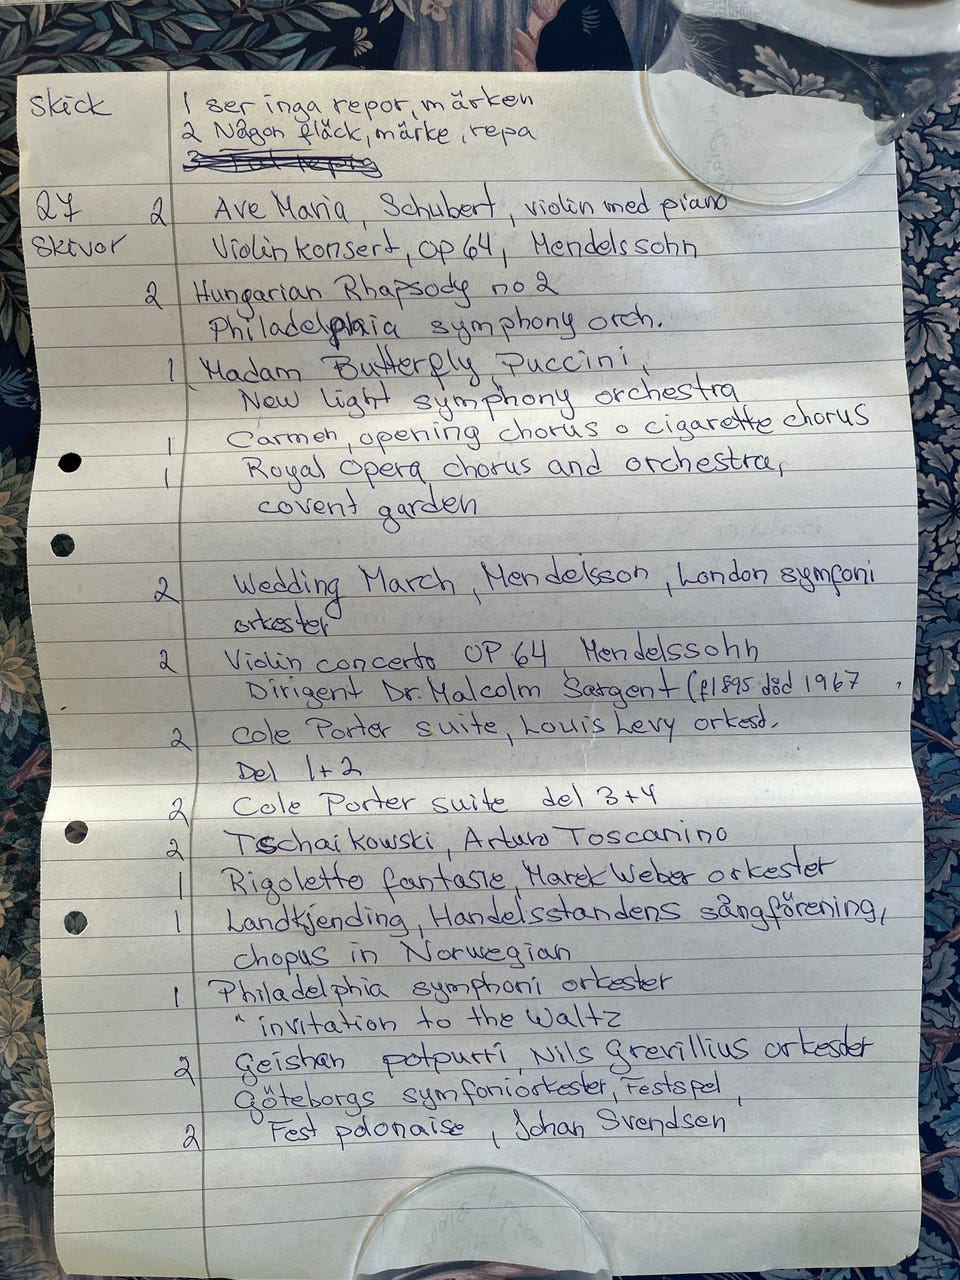 Skick 1 ser inga repor, märken
2 Någon fläck, märke, repa
27 2 Ave Maria, Schubert, violin med piano
Skivor Violinkonsert, OP 64, Mendelssohn
2 Hungarian Rhapsody no 2
Philadelphia symphony orch.
1 Madam Butterfly Puccini,
New light symphony orchestra
1 Carmen, opening chorus o cigarette chorus
1 Royal Opera chorus and orchestra,
covent garden
2 Wedding March, Mendelsson, London symfoni
orkester
2 Violin concerto OP 64 Mendelssohn
Dirigent Dr. Malcolm Sargent (f1895 död 1967
2 Cole Porter suite, Louis Levy orkest.
Del 1+2
2 Cole Porter suite del 3+4
2 Tschaikowski, Arturo Toscanino
1 Rigoletto fantasie, Marek Weber orkester
1 Landkjending, Handelsstandens sångförening,
chopus in Norwegian
1 Philadelphia symphoni orkester
" invitation to the Waltz
2 Geishan potpurri, Nils Grevillius orkester
Göteborgs symfoniorkester, Festspel,
2 Fest polonaise, Johan Svendsen